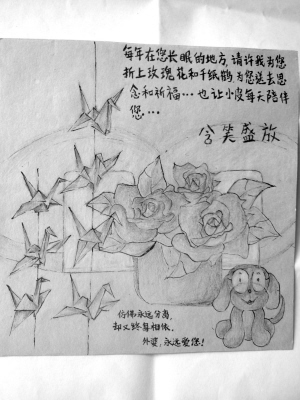 每年在您长眠的地方,请许我为您
折上玫瑰花和千纸鹤,为您送去思
念和祈福…也让小皮每天陪伴
您…
含笑盛放
仿佛永远分离,
却又终身相依.
外婆,永远爱您!